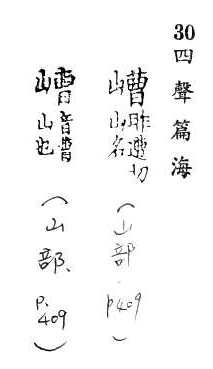 30 四聲篇海
嶆 昨遭切山名 (山部 p409)
音曹山也 (山部、P.409)